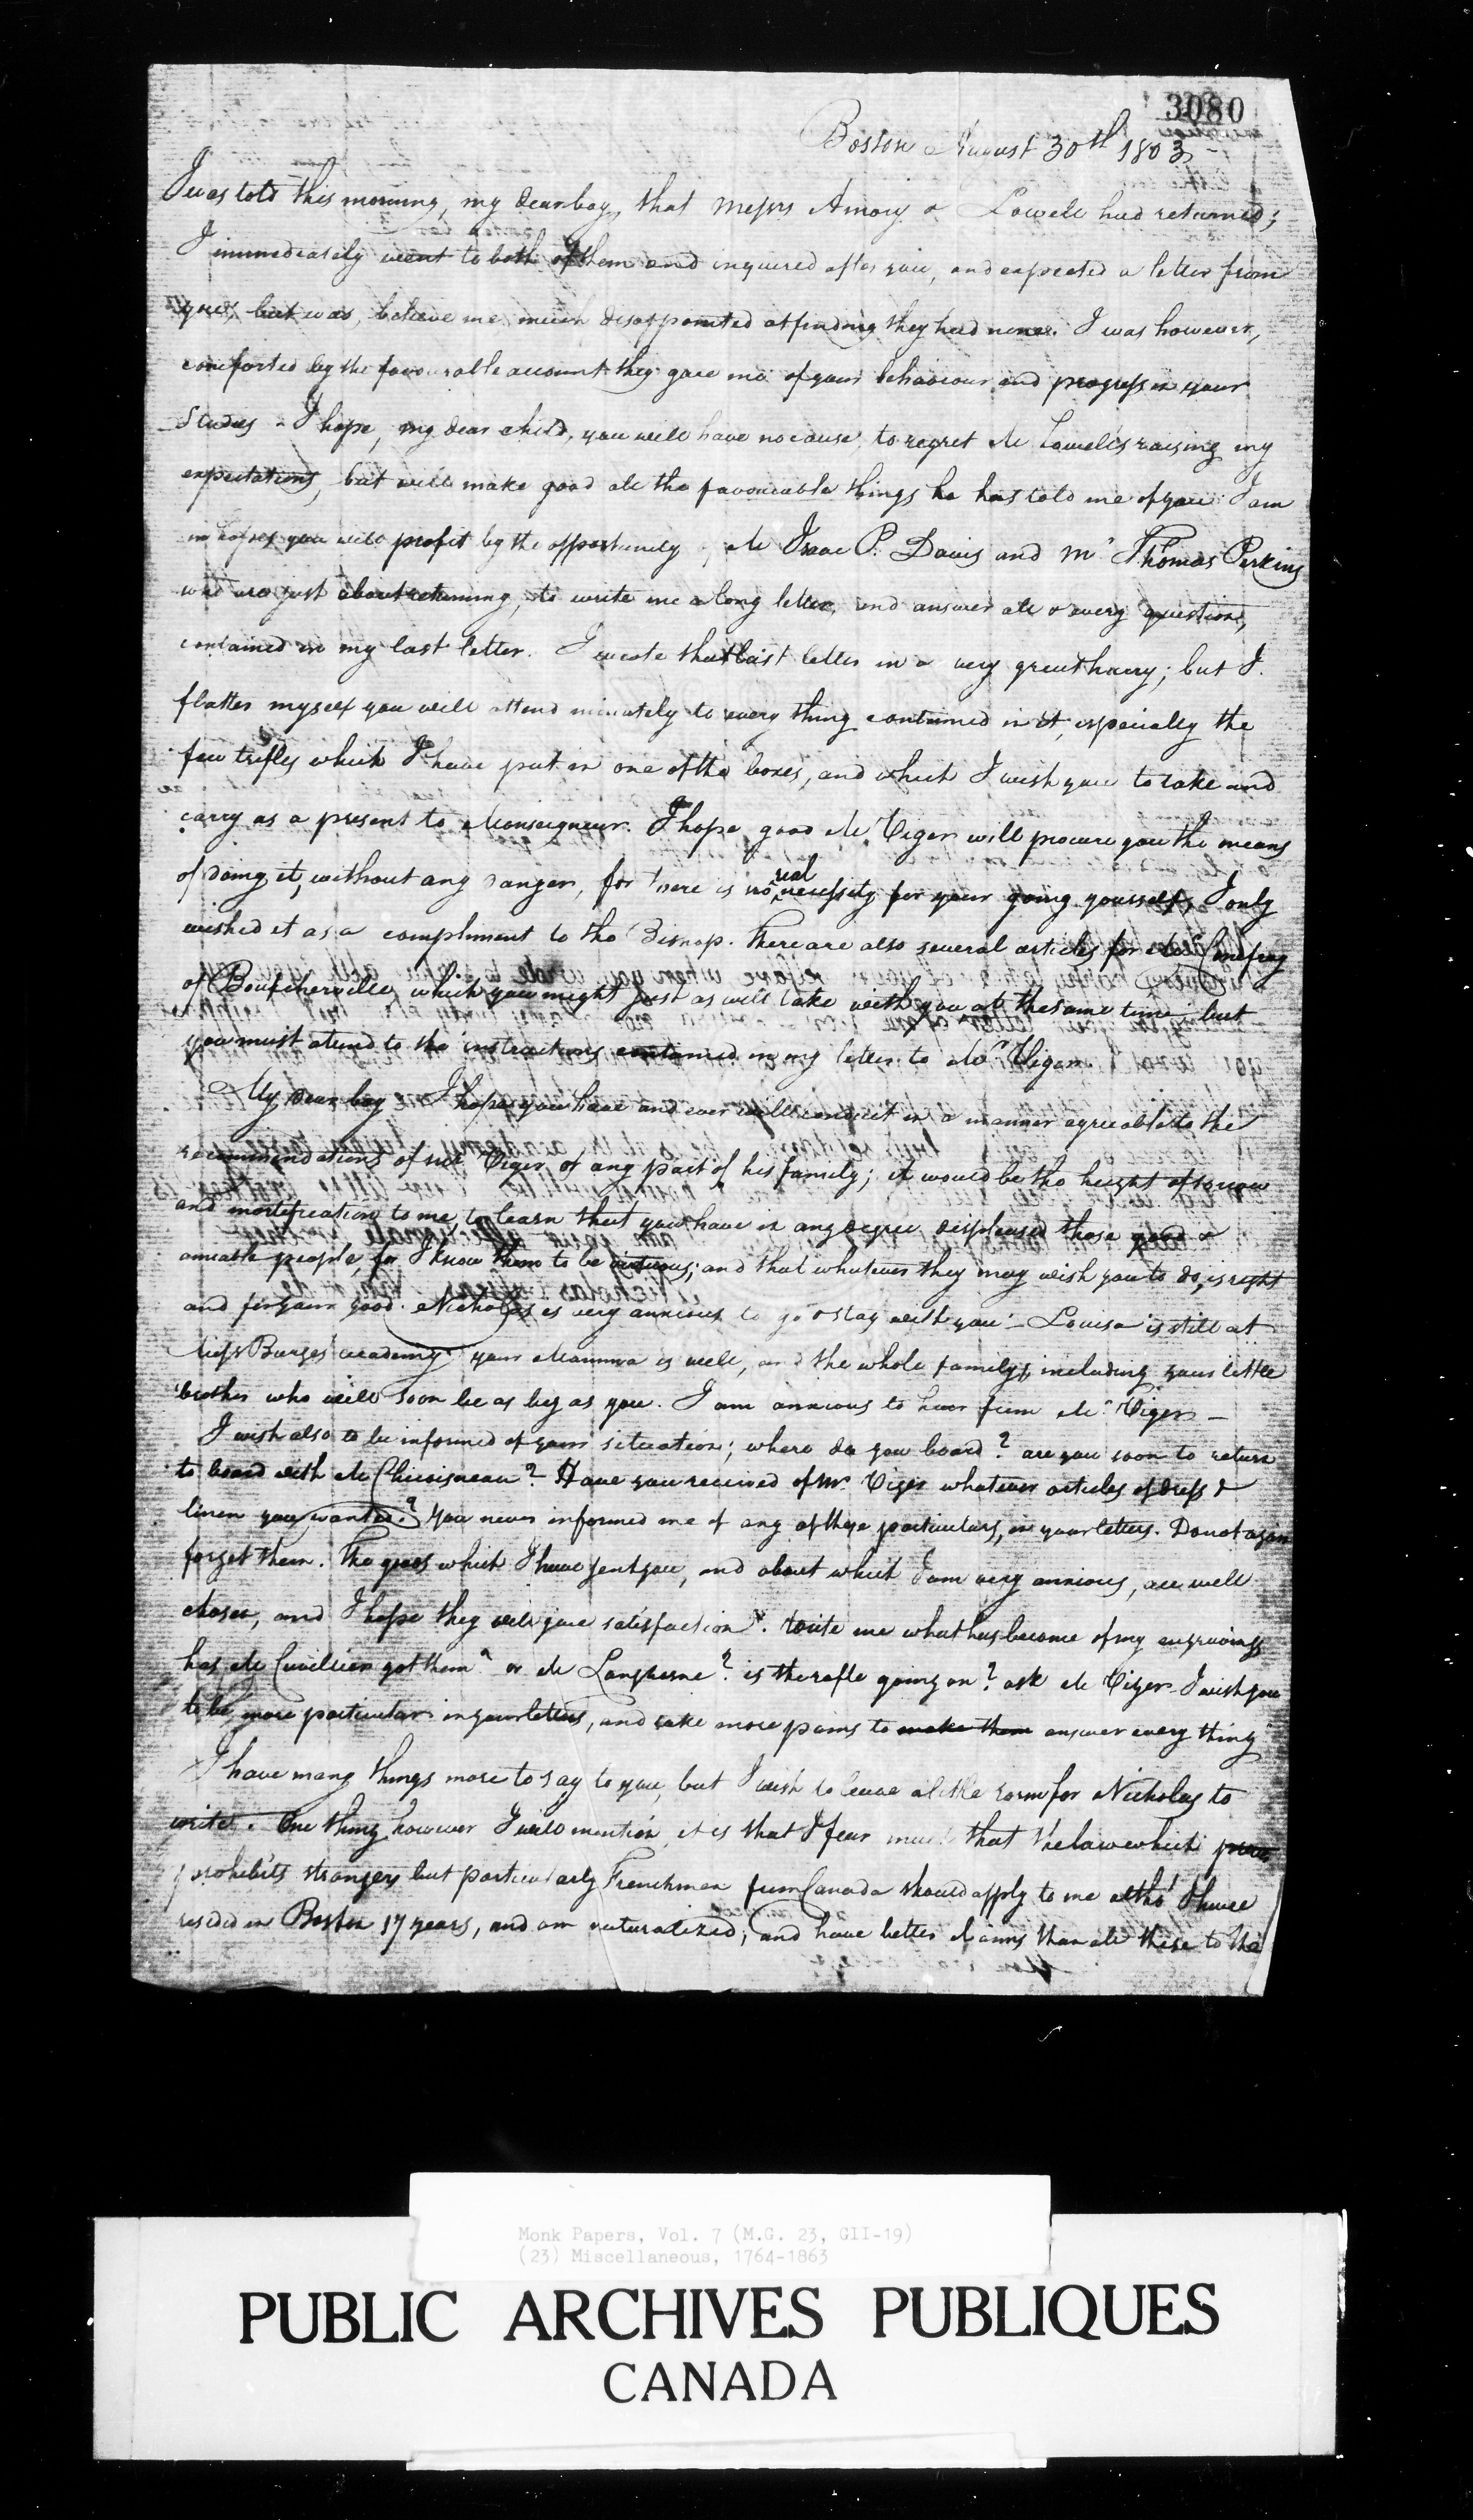 3080
Boston August 30th 1803
I was told this morning, my dear boy, that Messrs Amory & Lowell had returned;
I immediately went to both of them and inquired after you, and expected a letter from
you, but was, believe me, much disappointed at finding they had none. I was however,
comforted by the favourable account they gave me of your behaviour and progress in your
studies - I hope, my dear child, you will have no cause, to regret Mr Lowell's raising my
expectations, but will make good all the favourable things he has told me of you. I am
in hopes you will profit by the opportunity of Mr Isaac P. Davis and Mr Thomas Perkins
who are just about returning, to write me a long letter, and answer all & every question,
contained in my last letter. I wrote that last letter in a very great hurry; but I
flatter myself you will attend minutely to every thing contained in it, especially the
few trifles which I have put in one of the boxes, and which I wish you to take and
carry as a present to Monseigneur. I hope good Mr Viger will procure you the means
of doing it, without any danger, for there is no real necessity for your going yourself, I only
wished it as a compliment to the Bishop. There are also several articles for
of Boucherville, which you might just as well take with you at the same time but
you must attend to the instructions contained in my letter to Mr Viger.
My dear boy I hope you have and ever will conduct in a manner agreeable to the
recommendations of Mr Viger of any part of his family; it would be the height of sorrow
and mortification to me, to learn that you have in any degree displeased those good &
amiable people, for I know them to be virtuous; and that whatever they may wish you to do, is right
and for your good. Nicholas is very anxious to go & stay with you - Louisa is still at
Miss Burges' academy your Mamma is well, and the whole family, including your little
brother who will soon be as big as you. I am anxious to hear from Mr. Viger -
I wish also to be informed of your situation; where do you board? are you soon to return
to board with Mr Chicoisneau? Have you received of Mr. Viger whatever articles of dress &
linen you wanted? You never informed me of any of these particulars, in your letters. Do not again
forget them. The goods which I have sent you, and about which I am very anxious, are well
chosen, and I hope they will give satisfaction. Write me what has become of my engravings
has Mr Cuvillier got them? or Mr Langhorne? is the rafle going on? ask Mr Viger I wish you
to be more particular in your letters, and take more pains to make them answer every thing
I have many things more to say to you, but I wish to leave a little room for Nicholas to
write. One thing however I will mention, it is that I fear much that the law which
prohibits strangers but particularly Frenchmen from Canada should apply to me altho' I have
resided in Boston 17 years, and am naturalized; and have better claims than all these to the
Monk Papers, Vol. 7 (M.G. 23, GII-19)
(23) Miscellaneous, 1764-1863
PUBLIC ARCHIVES PUBLIQUES
CANADA